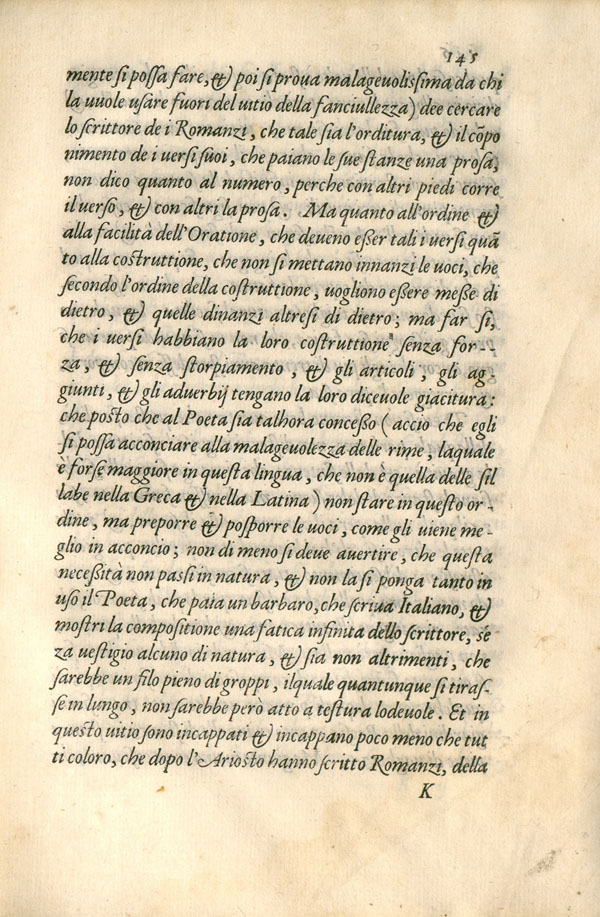 145
mente si possa fare, & poi si prova malagevolissima da chi
la vuole usare fuori del vitio della fanciullezza) dee cercare
lo scrittore de i Romanzi, che tale sia l'orditura, & il cõpo
nimento de i versi suoi, che paiano le sue stanze una prosa,
non dico quanto al numero, perche con altri piedi corre
il verso, & con altri la prosa. Ma quanto all'ordine &
alla facilità dell'Oratione, che deveno esser tali i versi quã
to alla costruttione, che non si mettano innanzi le voci, che
secondo l'ordine della costruttione, vogliono essere messe di
dietro, & quelle dinanzi altresi di dietro; ma far si,
che i versi habbiano la loro costruttione senza for--
za, & senza storpiamento, & gli articoli, gli ag-
giunti, & gli adverbij tengano la loro dicevole giacitura:
che posto che al Poeta sia talhora concesso (accio che egli
si possa acconciare alla malagevolezza delle rime, laquale
è forse maggiore in questa lingua, che non è quella delle sil
labe nella Greca & nella Latina) non stare in questo or-
dine, ma preporre & posporre le voci, come gli viene me-
glio in acconcio; non di meno si deve avertire, che questa
necessità non passi in natura, & non la si ponga tanto in
uso il Poeta, che paia un barbaro, che scriva Italiano, &
mostri la compositione una fatica infinita dello scrittore, sẽ
za vestigio alcuno di natura, & sia non altrimenti, che
sarebbe un filo pieno di groppi, ilquale quantunque si tiras-
se in lungo, non sarebbe però atto a testura lodevole. Et in
questo vitio sono incappati & incappano poco meno che tut
ti coloro, che dopo l'Ariosto hanno scritto Romanzi, della
K